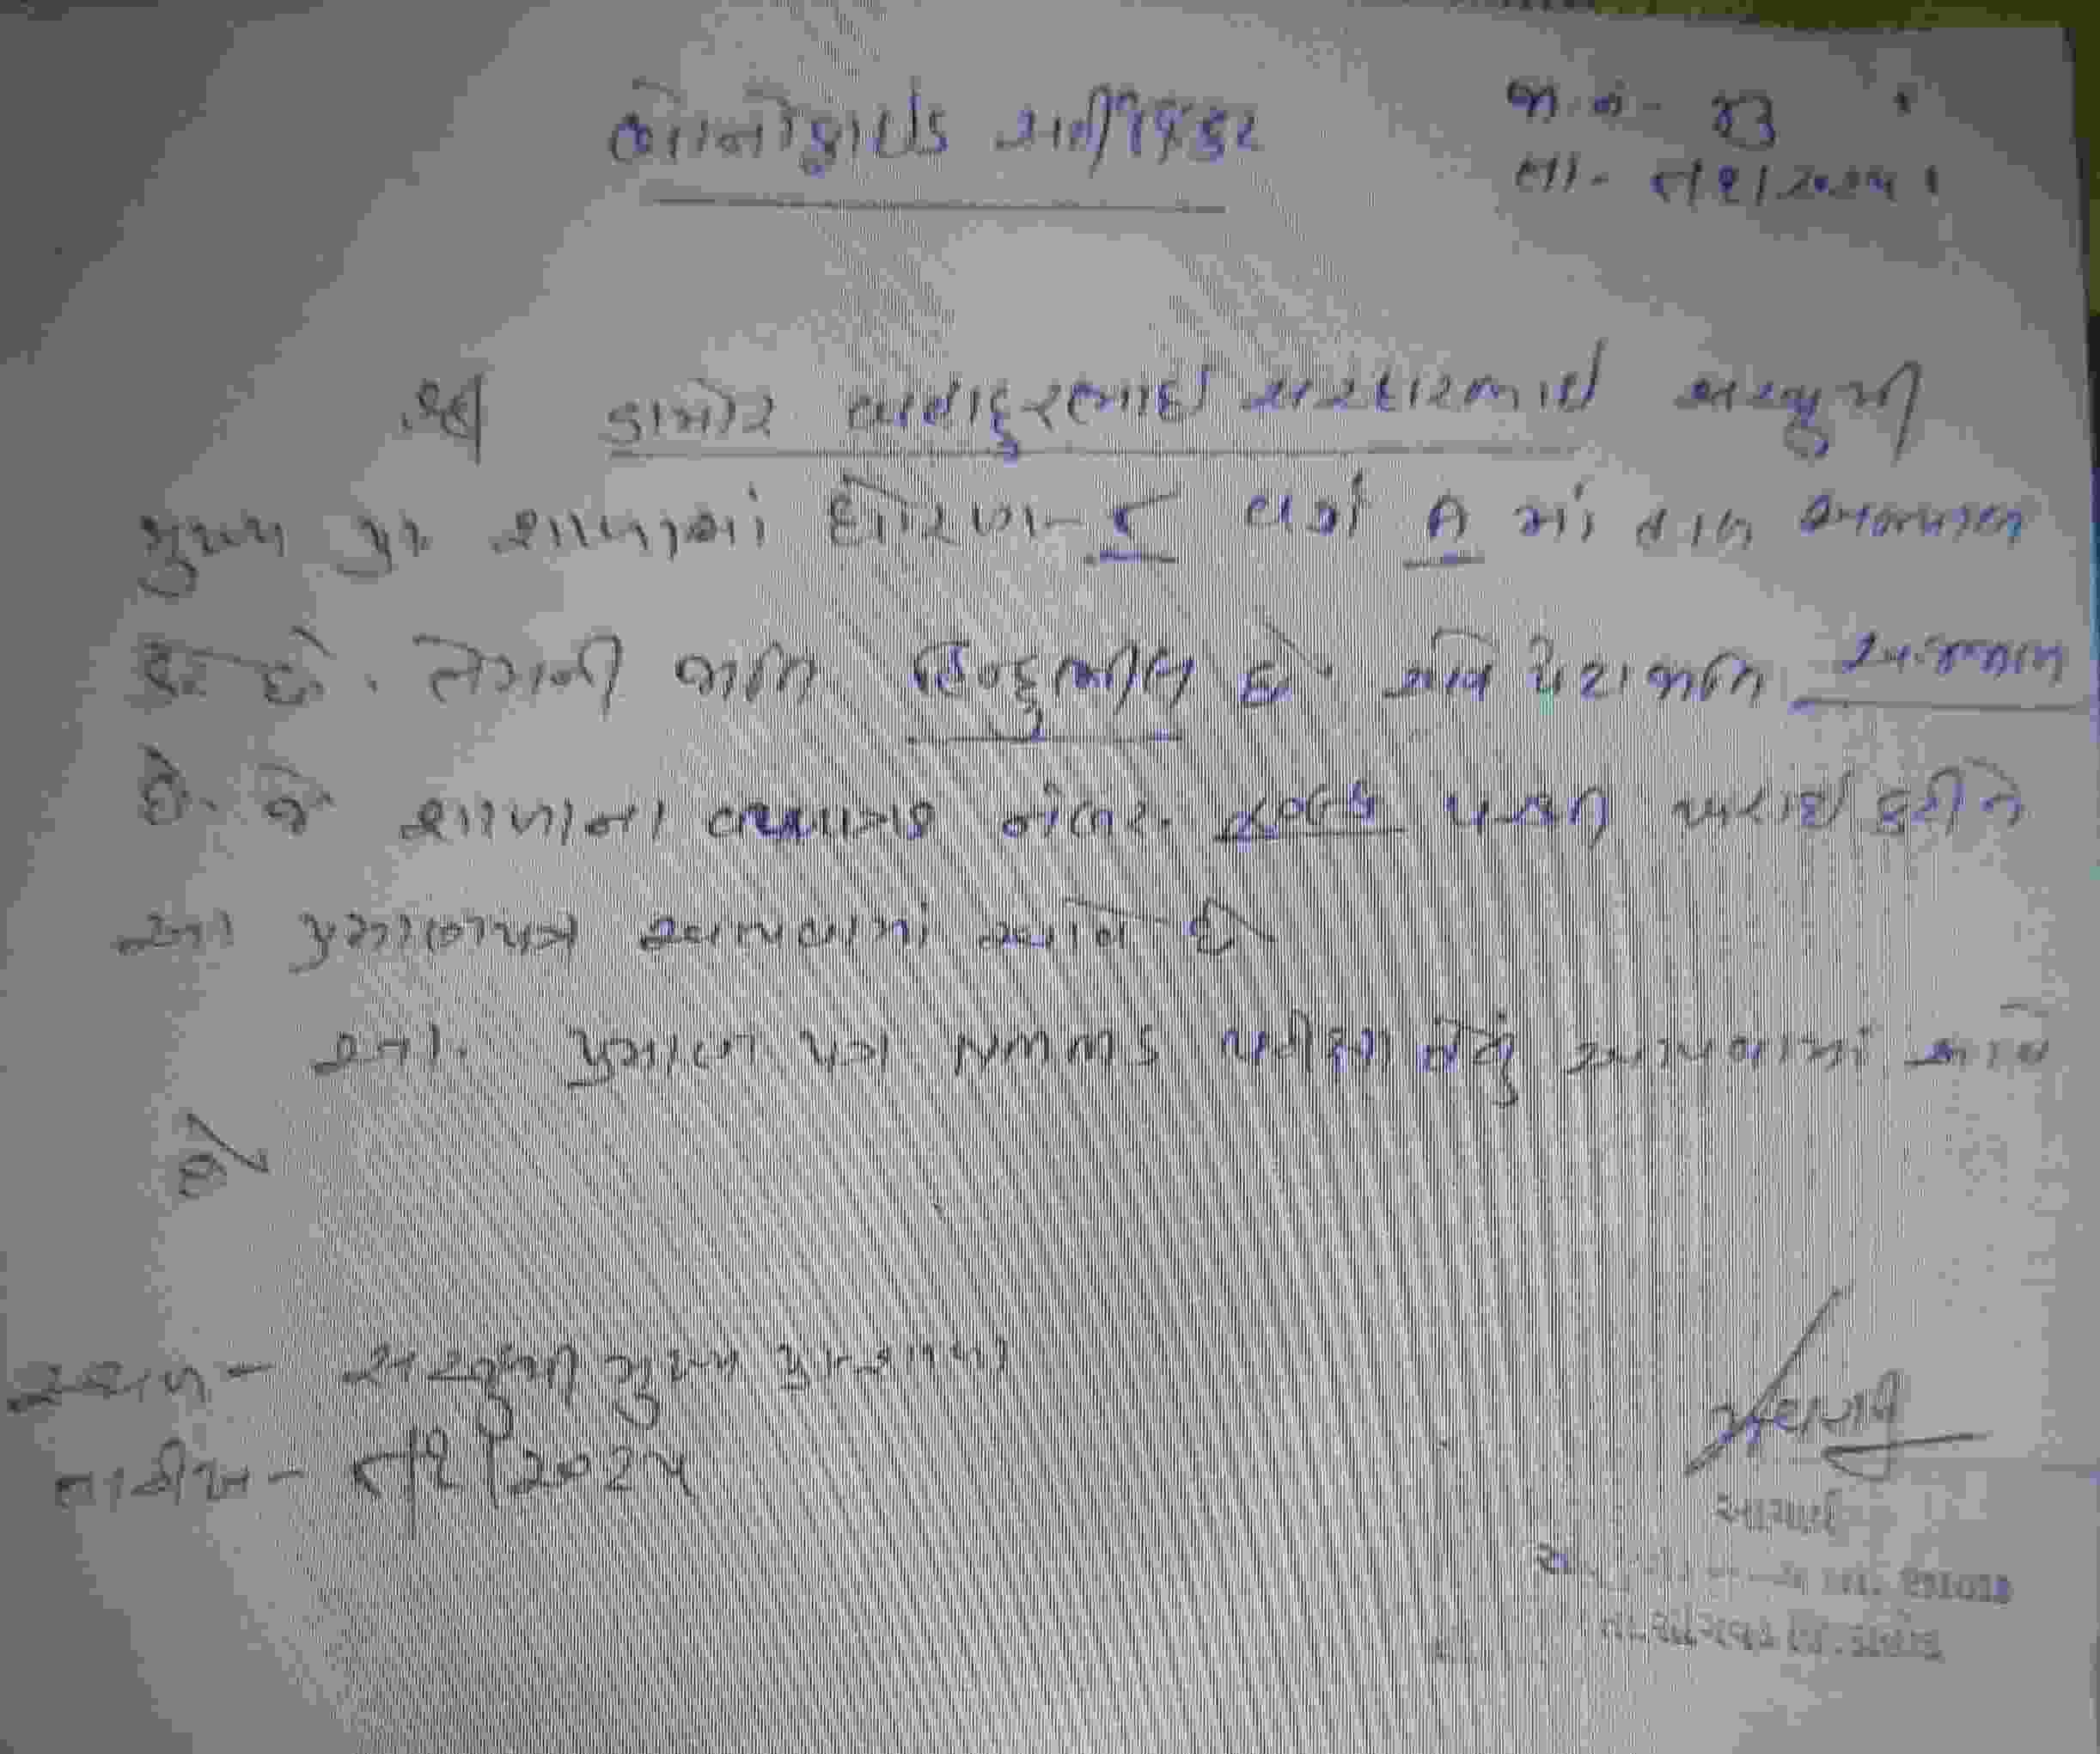 બોનોફાઇડ સર્ટીફિકેટ
જા.નં-
તા- ૮/૧/૨૦૨૫
શ્રી ડામોર બહાદુરભાઇ સરદારભાઇ સરજુમી
મુખ્ય પ્રા શાળામાં ધોરણ- ૮ વર્ગ A માં હાલ અભ્યાસ
કરે છે. તેમની જાતિ હિન્દુ ભીલ છે. અને પેટાજાતિ
છે. જે શાળાના વયપત્રક નંબર. પરથી ખરાઇ કરીને
આ પ્રમાણપત્ર આપવામાં આવે છે
આ. પ્રમાણ પત્ર NMMS પરીક્ષા હેતું આપવામાં આવે
છે
સ્થળ- સરજુમી મુખ્ય પ્રા શાળા
તારીખ- ૮/૧/૨૦૨૫
આચાર્ય